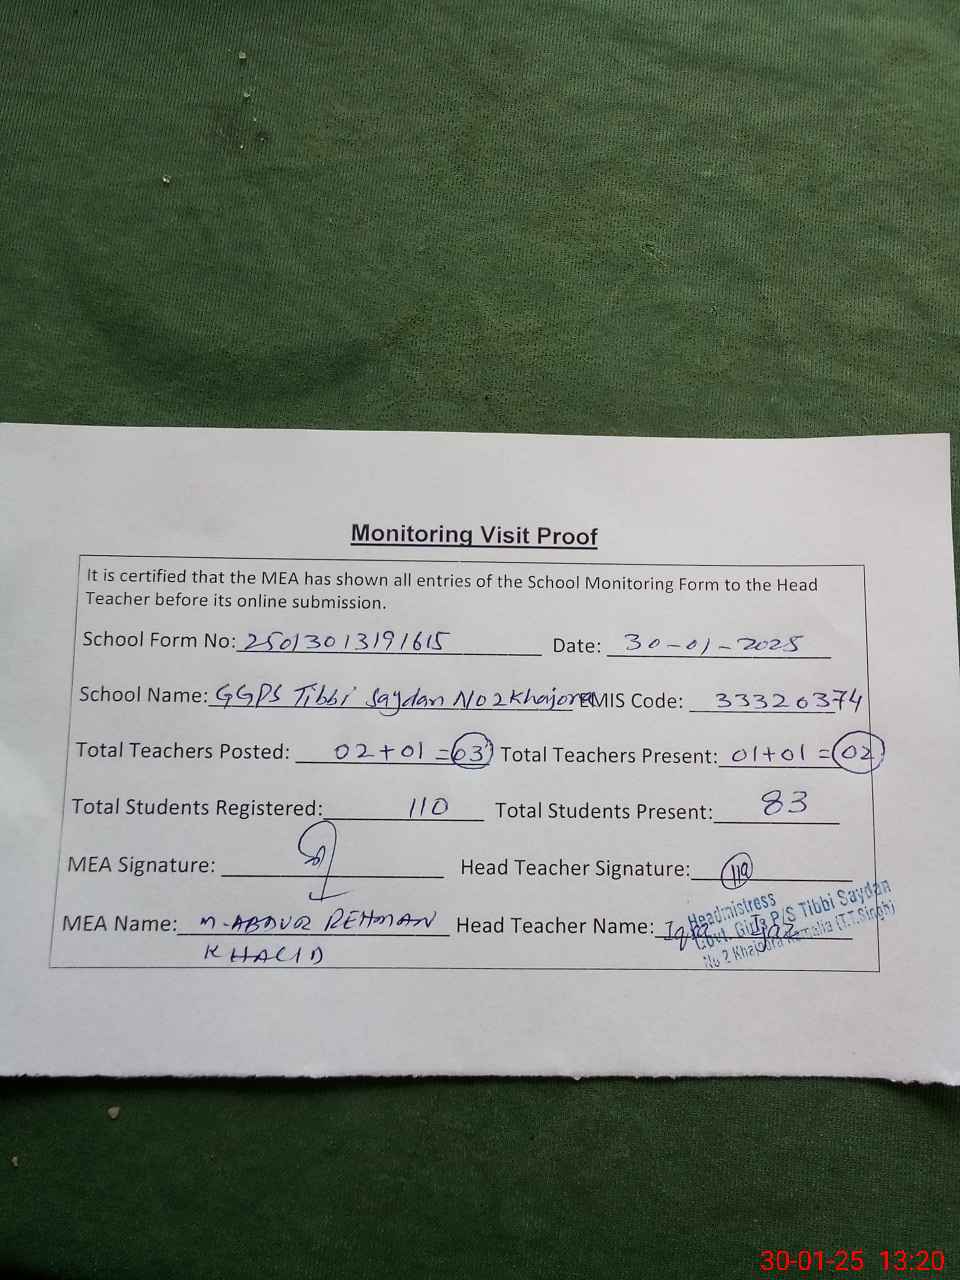 Monitoring Visit Proof
It is certified that the MEA has shown all entries of the School Monitoring Form to the Head
Teacher before its online submission.
School Form No: 25013013191615 Date: 30-01-2025
School Name: GGPS Tibbi Saydan No 2 Khajora EMIS Code: 33320374
Total Teachers Posted: 02+01=03 Total Teachers Present: 01+01=02
Total Students Registered: 110 Total Students Present: 83
MEA Signature: Head Teacher Signature:
MEA Name: M-ABDUR REHMAN Head Teacher Name: Iqra
KHALID
Headmistress
Govt. Girls P/S Tibbi Saydan
No 2 Khajoora Kamalia (T.T.Singh)
30-01-25 13:20